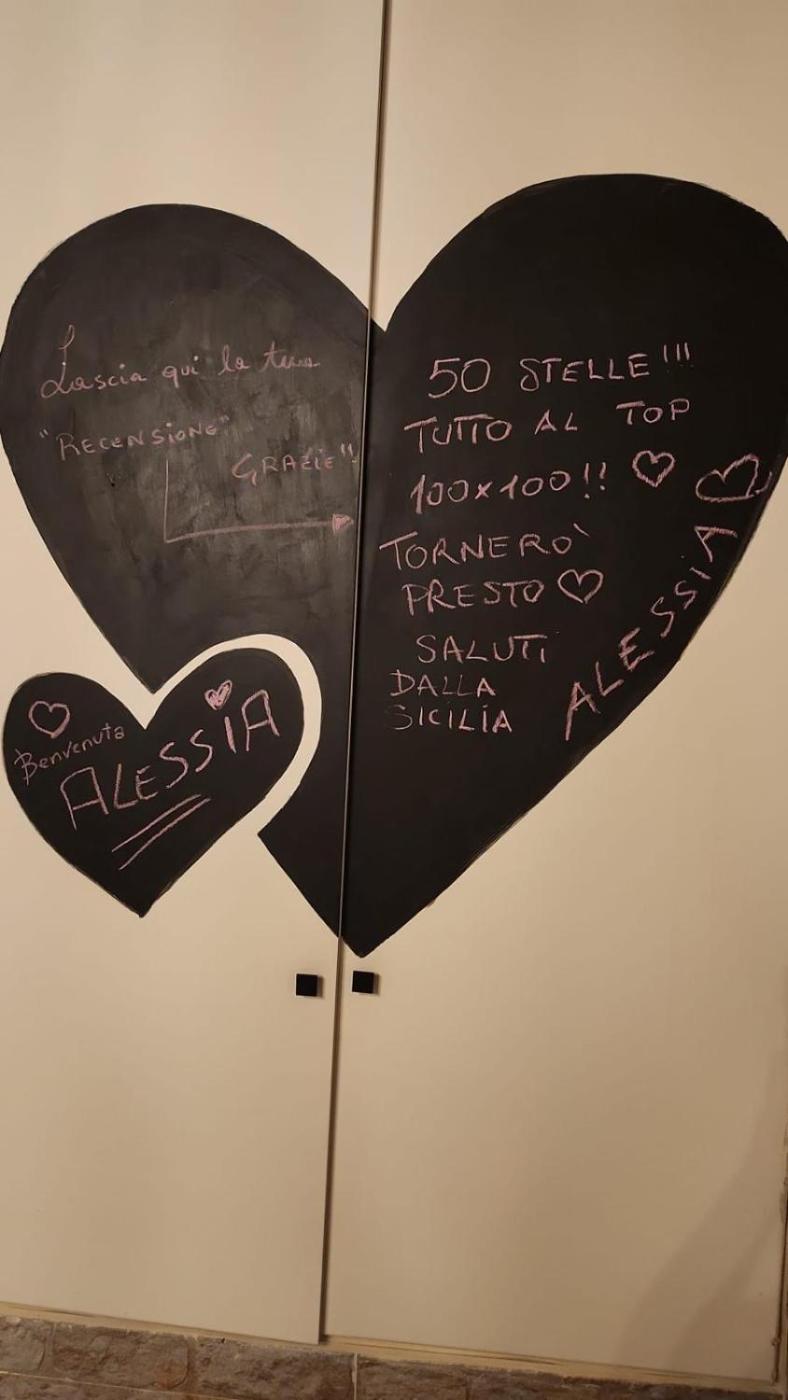 Lascia qui la tua
"RECENSIONE"
GRAZIE!!
Benvenuta
ALESSIA
50 STELLE!!!
TUTTO AL TOP
100x100!!
TORNERO`
PRESTO
SALUTI
DALLA
SICILIA
ALESSIA